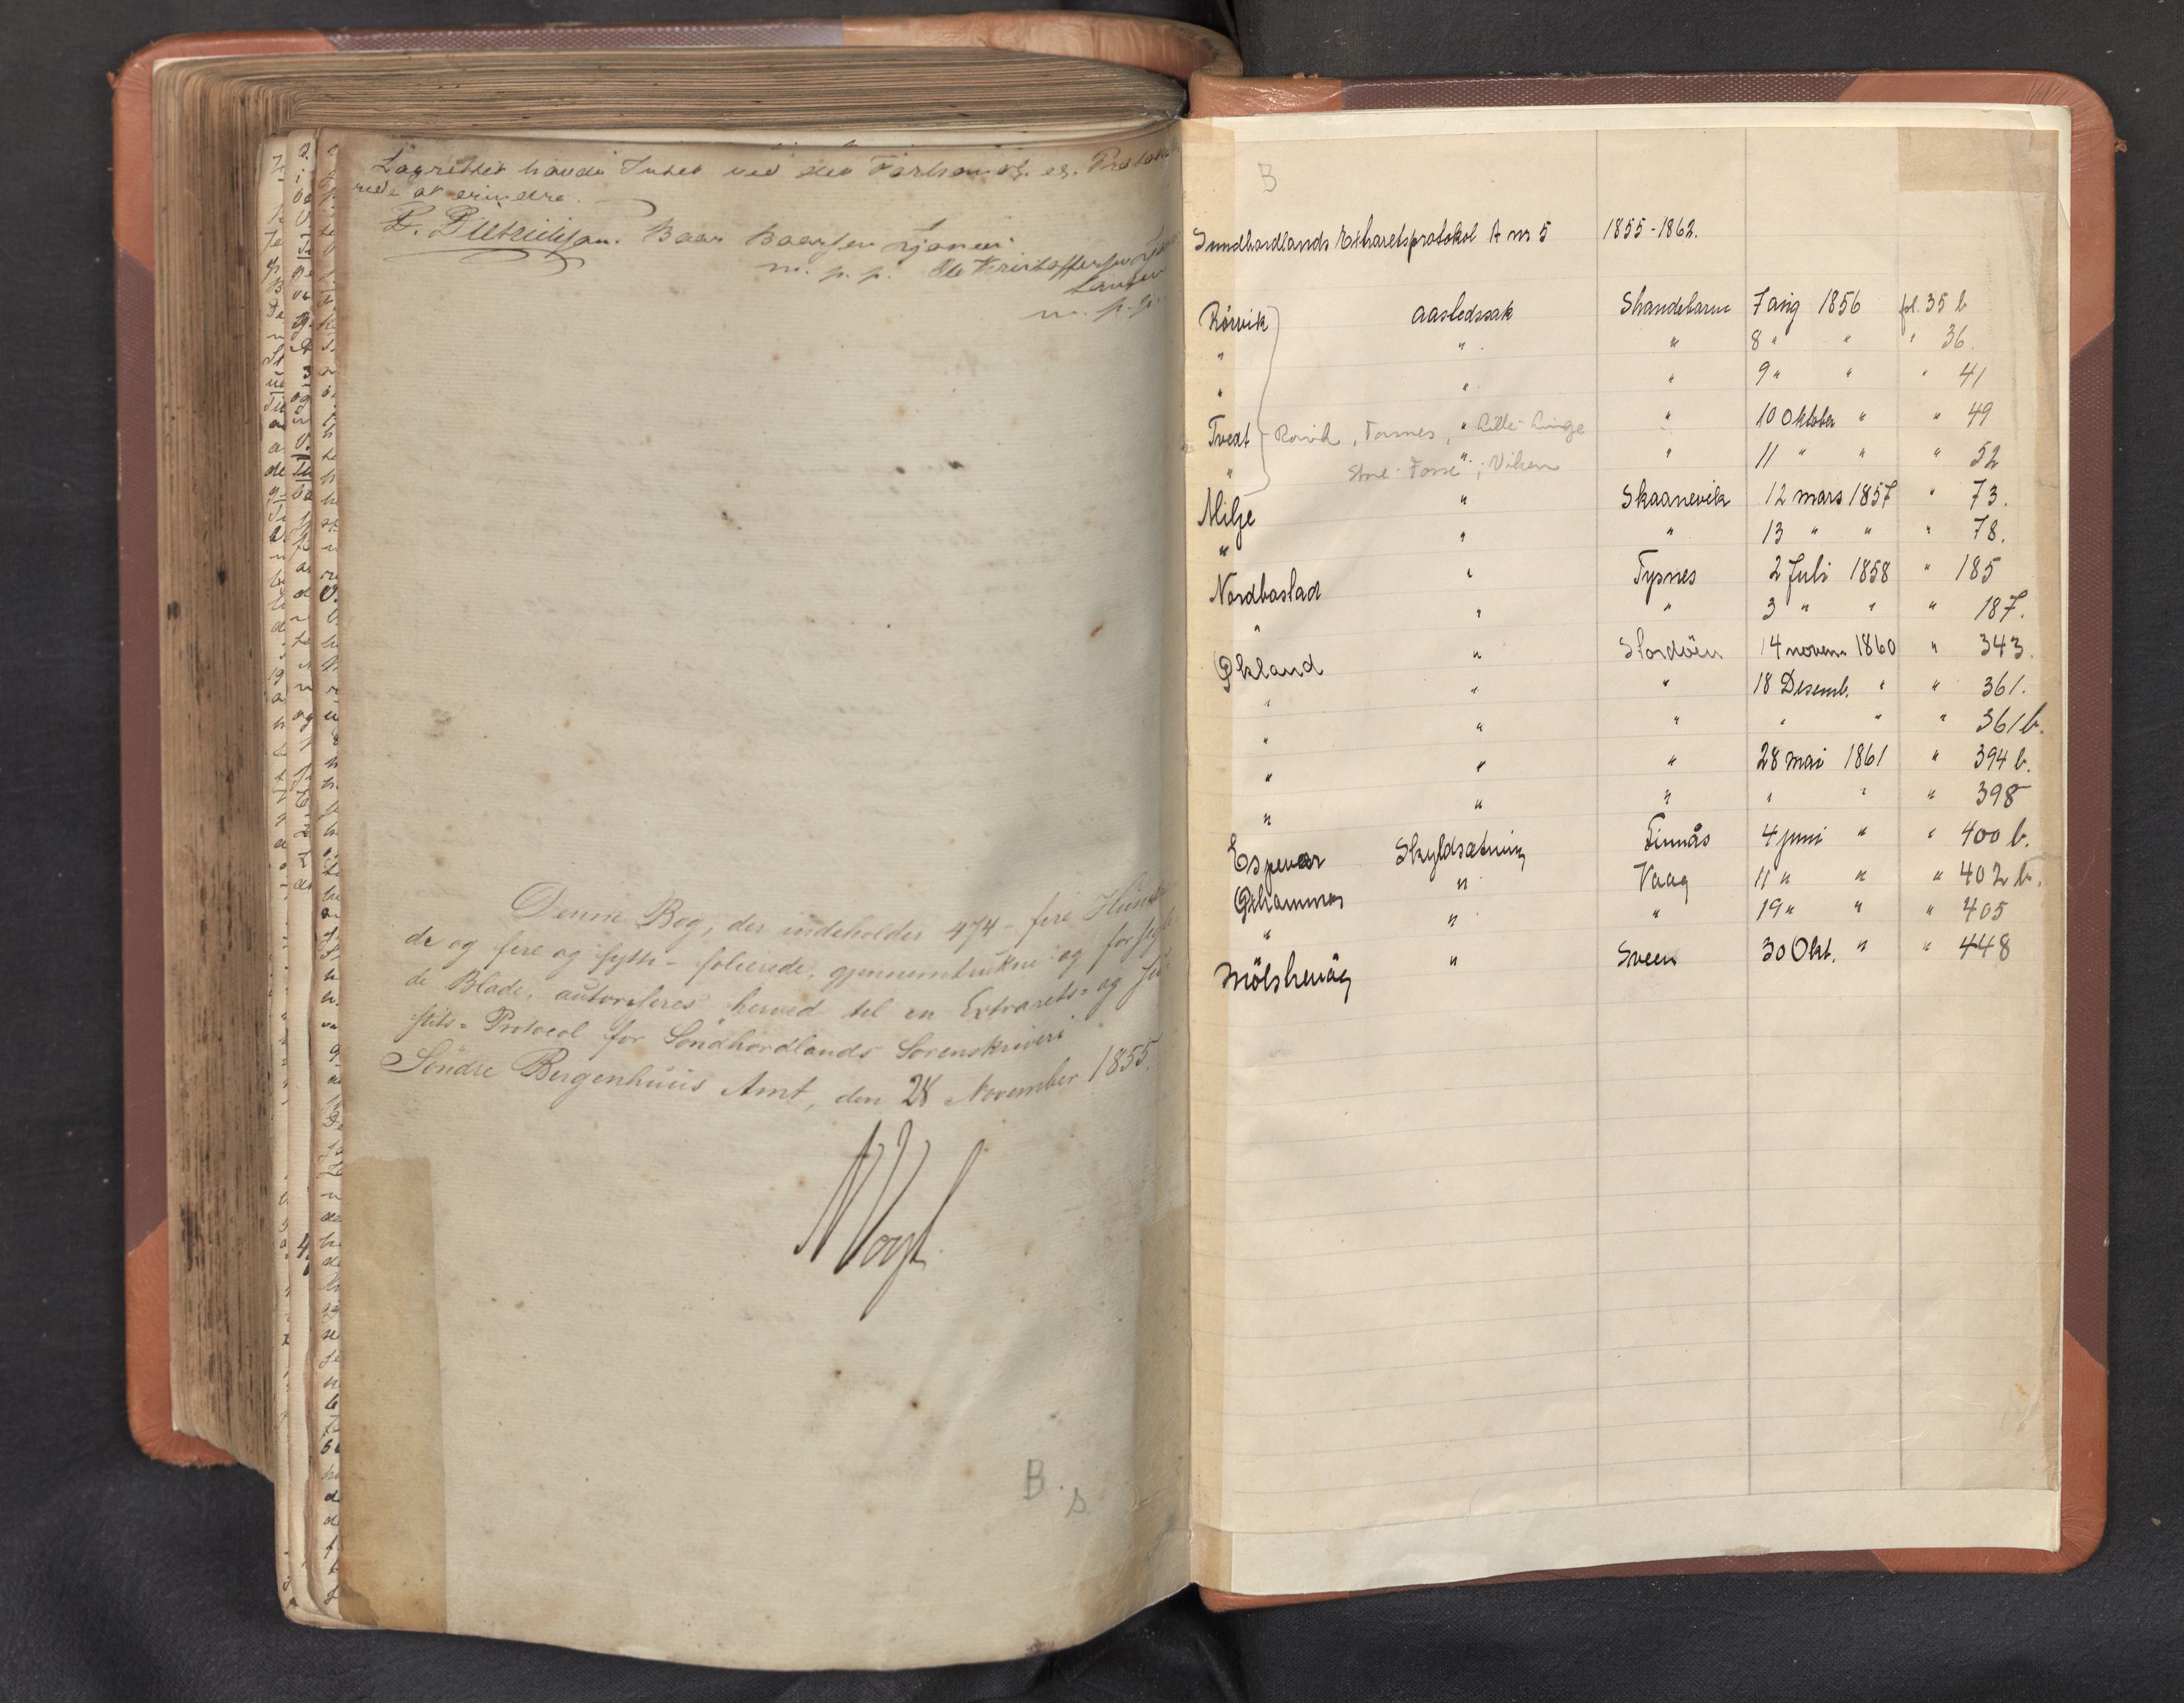 Lagrettet havde Intet ved det Forhand. og. Protoko
rede at erindre.
Baar Baarsen
m. p. p. Ole Kristoffersen
m. p. p.
Denne Bog, der indeholder 474 - fire Hund
de og fire og sytti - folierede, gjennemtrukne og forsegle
de Blade, autoriseres herved til en Extrarets- og Ju-
stits- Protocol for Söndhordlands Sorenskriveri
Söndre Bergenhuus Amt, den 28 November 1855.
NVogt
B. s
B
Sundhordlands Ekstraretsprotokol A nr 5 1855-1862.
Rörvik aastedssak Strandebarm 7 aug 1856 fol. 35 b
" " " 8 " " " 36.
" " " 9 " " " 41
Tveit " " 10 Oktober " " 49
Rörvik, Fosnes, Lille-Linge
" " " 11 " " " 52
Store-Fosse; Viken
Milje " Skaanevik 12 mars 1857 " 73.
" " " 13 " " " 78.
Nordbostad " Tysnes 2 Juli 1858 " 185
" " " 3 " " " 187.
Økland " Stordöen 14 novem. 1860 " 343.
" " " 18 Desemb. " " 361.
" " " " " " 361 b.
" " " 28 mai 1861 " 394 b.
" " " " " " 398
Espevær Skyldsætning Finnås 4 juni " " 400 b.
Øklammer " Vaag 11 " " " 402 b.
" " " 19 " " " 405
Mölstrevåg " Sveen 30 Okt. " " 448